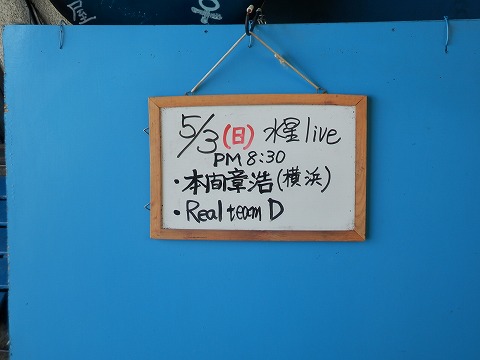 5/3(日) 水星live
PM 8:30
・本間章浩(横浜)
・Real team D